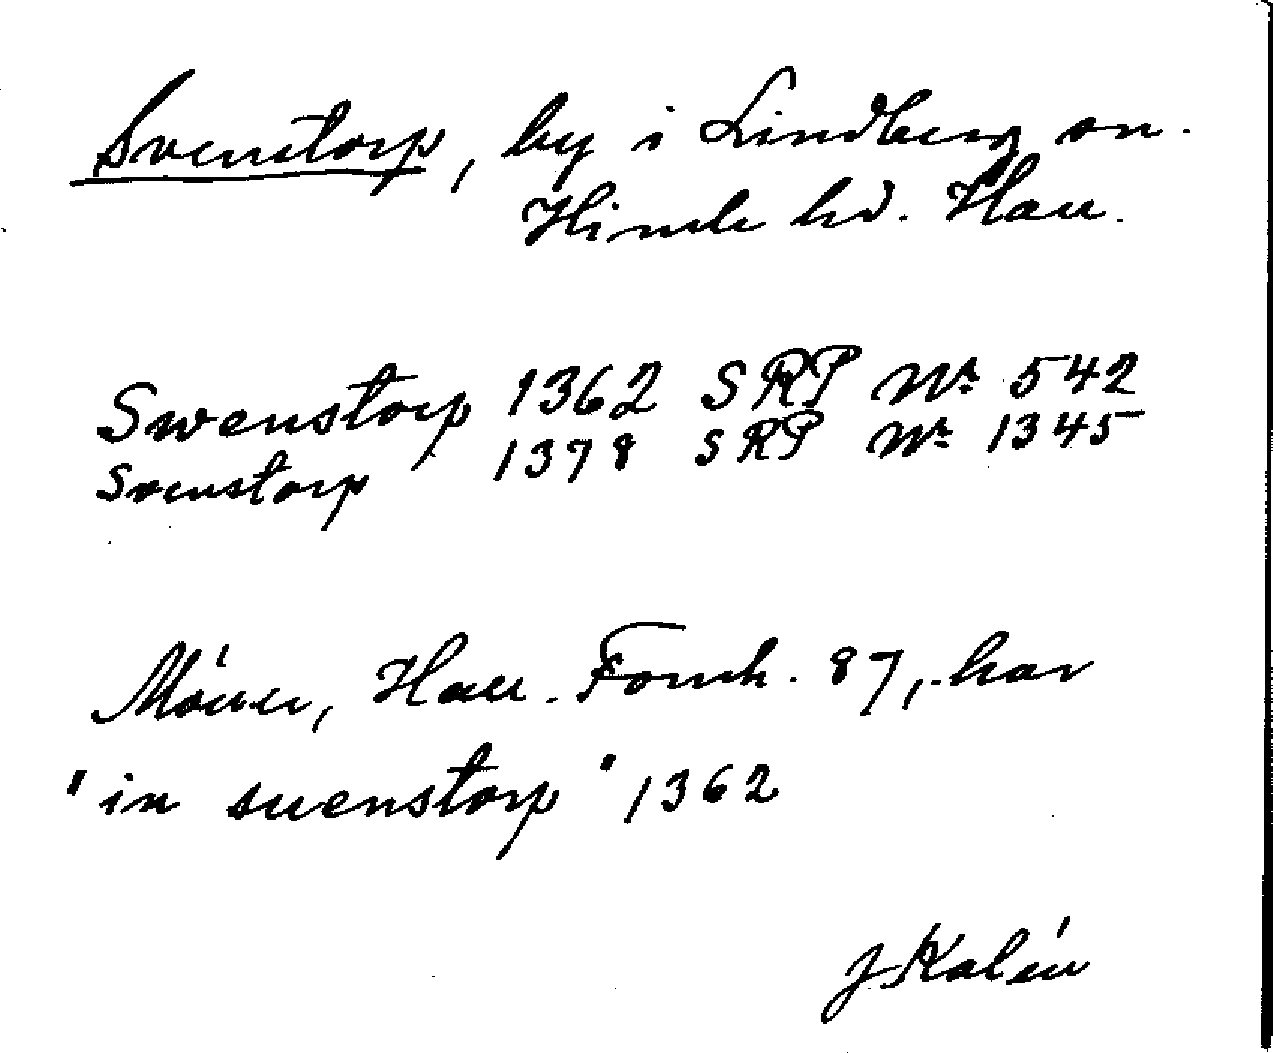 Svenstorp, by i Lindberg sn.
Himle hd. Hall.
Swenstorp 1362 SRP Nr. 542
Svenstorp 1378 SRP Nr. 1345
Hall. 87, har
"in suenstorp" 1362
J Kalén